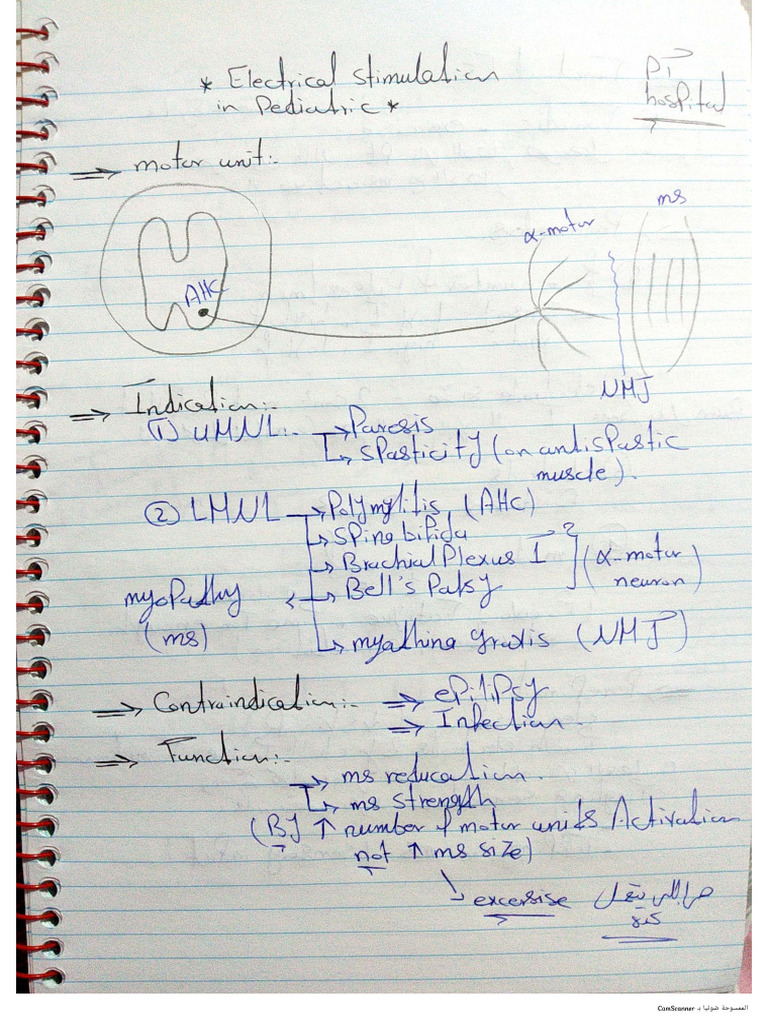 * Electrical stimulation
in Pediatric *
PT
hospital
⇒ motor unit:-
AHC
α-motor
ms
NMJ
⇒ Indication:-
(1) UMNL:- → Paresis
↳ spasticity (on antispastic
muscle).
(2) LMNL → Polymylitis, (AHC)
↳ spine bifida
↳ Brachial Plexus I
→ Bell's Palsy
(α-motor
neuron)
myopathy
(ms)
↳ myathina gravis (NMJ)
⇒ Contraindication:- ⇒ epilipsy
⇒ Infection.
⇒ Function:-
→ ms reducation.
↳ ms strength
(By ↑ number of motor units Activation
not ↑ ms size)
↳ excersise